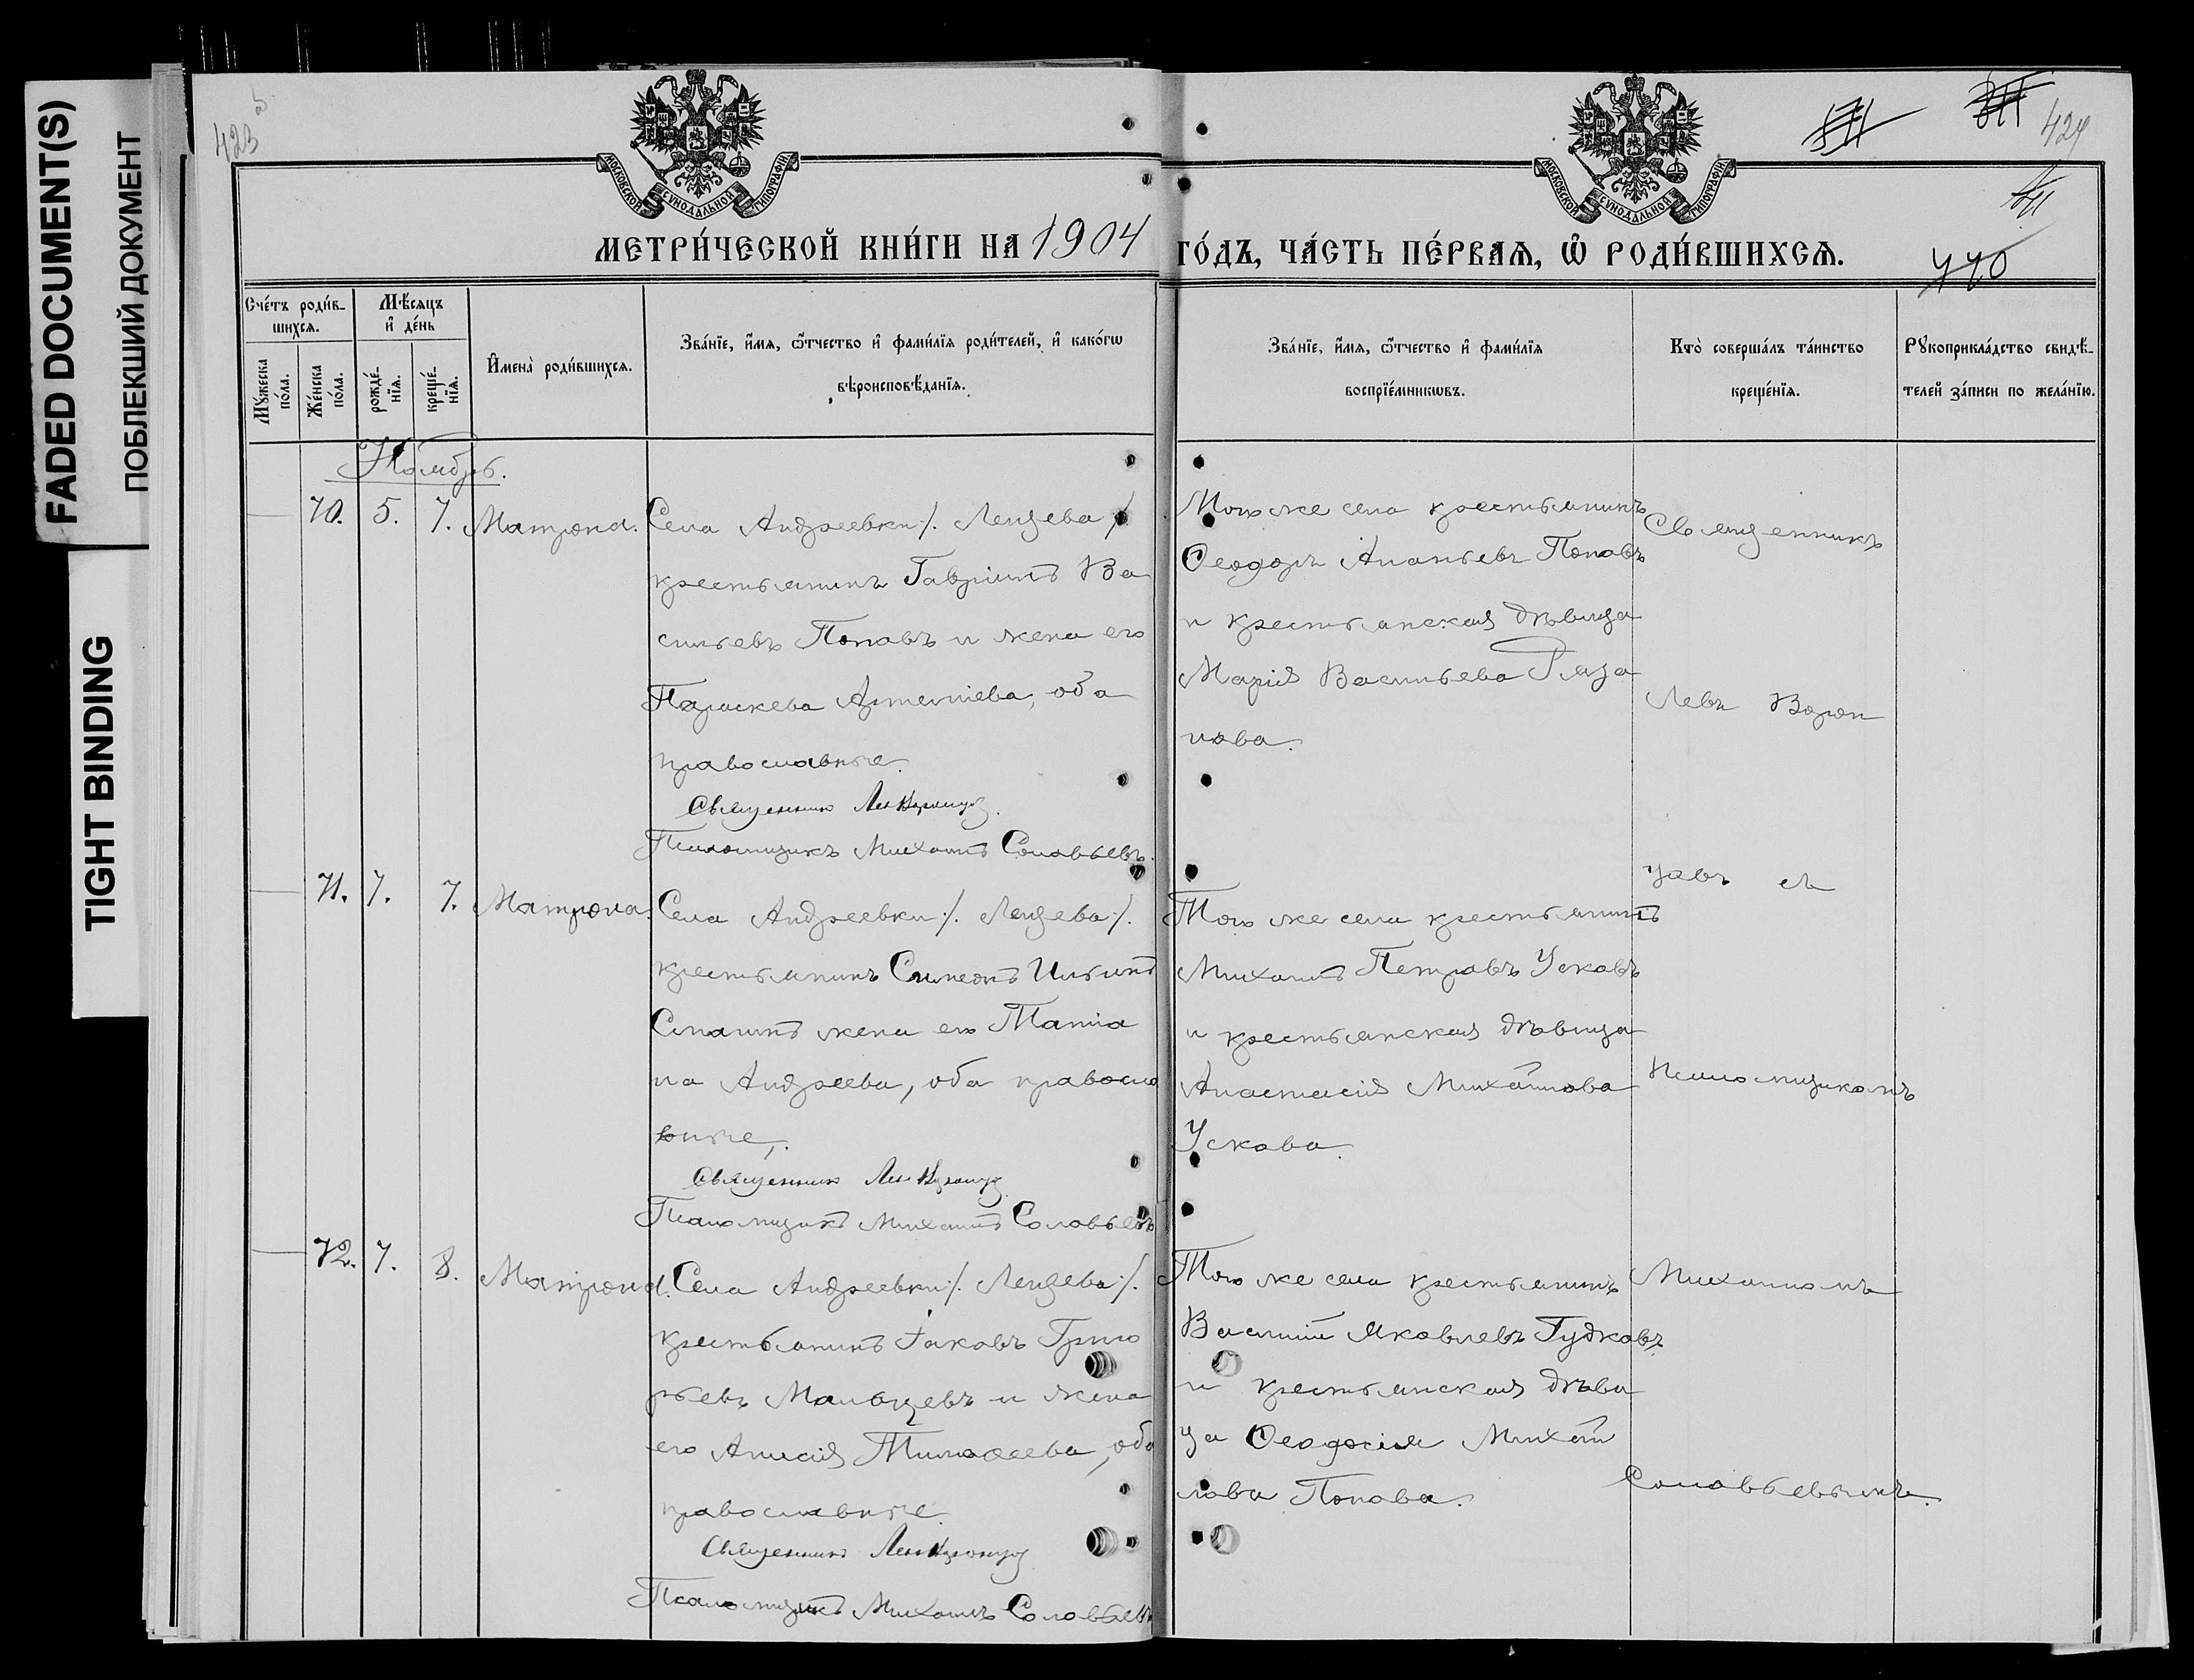 FADED DOCUMENT(S)
ПОБЛЕКШИЙ ДОКУМЕНТ
TIGHT BINDING
423
424
МОСКОВСКОЙ СѴНОДАЛЬНОЙ ТИПОГРАФІИ
МОСКОВСКОЙ СѴНОДАЛЬНОЙ ТИПОГРАФІИ
МЕТРИ́ЧЕСКОЙ КНИ́ГИ НА 1904 ГО́ДЪ, ЧА́СТЬ ПЕ́РВАѦ, Ѽ РОДИ́ВШИХСѦ.
Сче́тъ роди́в-
шихсѧ.
Мꙋ́жеска
по́ла.
Же́нска
по́ла.
Мѣ́сяцъ
и҆ де́нь
рожде́-
нїѧ.
креще́-
нїѧ.
И҆мена̀ роди́вшихсѧ.
Зва́нїе, и҆́мѧ, ѻ҆́тчество и҆ фами́лїѧ роди́телей, и҆ како́гѡ
вѣроисповѣ́данїѧ.
Зва́нїе, и҆́мѧ, ѻ҆́тчество и҆ фами́лїѧ
воспрїе́мникѡвъ.
Кто̀ соверша́лъ та́инство
креще́нїѧ.
Рꙋкоприкла́дство свидѣ́-
телей за́писи по жела́нїю.
Ноябрь.
70. 5. 7. Матрона.
Села Андреевки /. Лещева /.
крестьянинъ Гавріилъ Ва
сильевъ Поповъ и жена его
Параскева Артеміева, оба
православные.
Священникъ Левъ Воронцовъ.
Псаломщикъ Михаилъ Соловьевъ.
Того же села крестьянинъ
Ѳеодоръ Ананьевъ Поповъ
и крестьянская дѣвица
Марія Васильева Ряза
нова.
71. 7. 7. Матрона.
Села Андреевки /. Лещева /.
крестьянинъ Симеонъ Ильинъ
жена его Татіа
на Андреева, оба правосла
вные,.
Священникъ Левъ Воронцовъ.
Псаломщикъ Михаилъ Соловьевъ
Того же села крестьянинъ
Михаилъ Петровъ Усковъ
и крестьянская дѣвица
Анастасія Михайлова
Ускова.
72. 7. 8. Матрона.
Села Андреевки /. Лещева /.
крестьянинъ Іаковъ Григо
рьевъ Мальцевъ и жена
его Анисія Тимоѳеева, оба
православные.
Священникъ Левъ Воронцовъ
Псаломщикъ Михаилъ Соловьевъ
Того же села крестьянинъ
Василій Яковлевъ Гудковъ
и крестьянская дѣви
ца Ѳеодосія Михай
лова Попова.
Священникъ
Левъ Ворон
цовъ съ
Псаломщикомъ
Михаиломъ
Соловьевымъ.